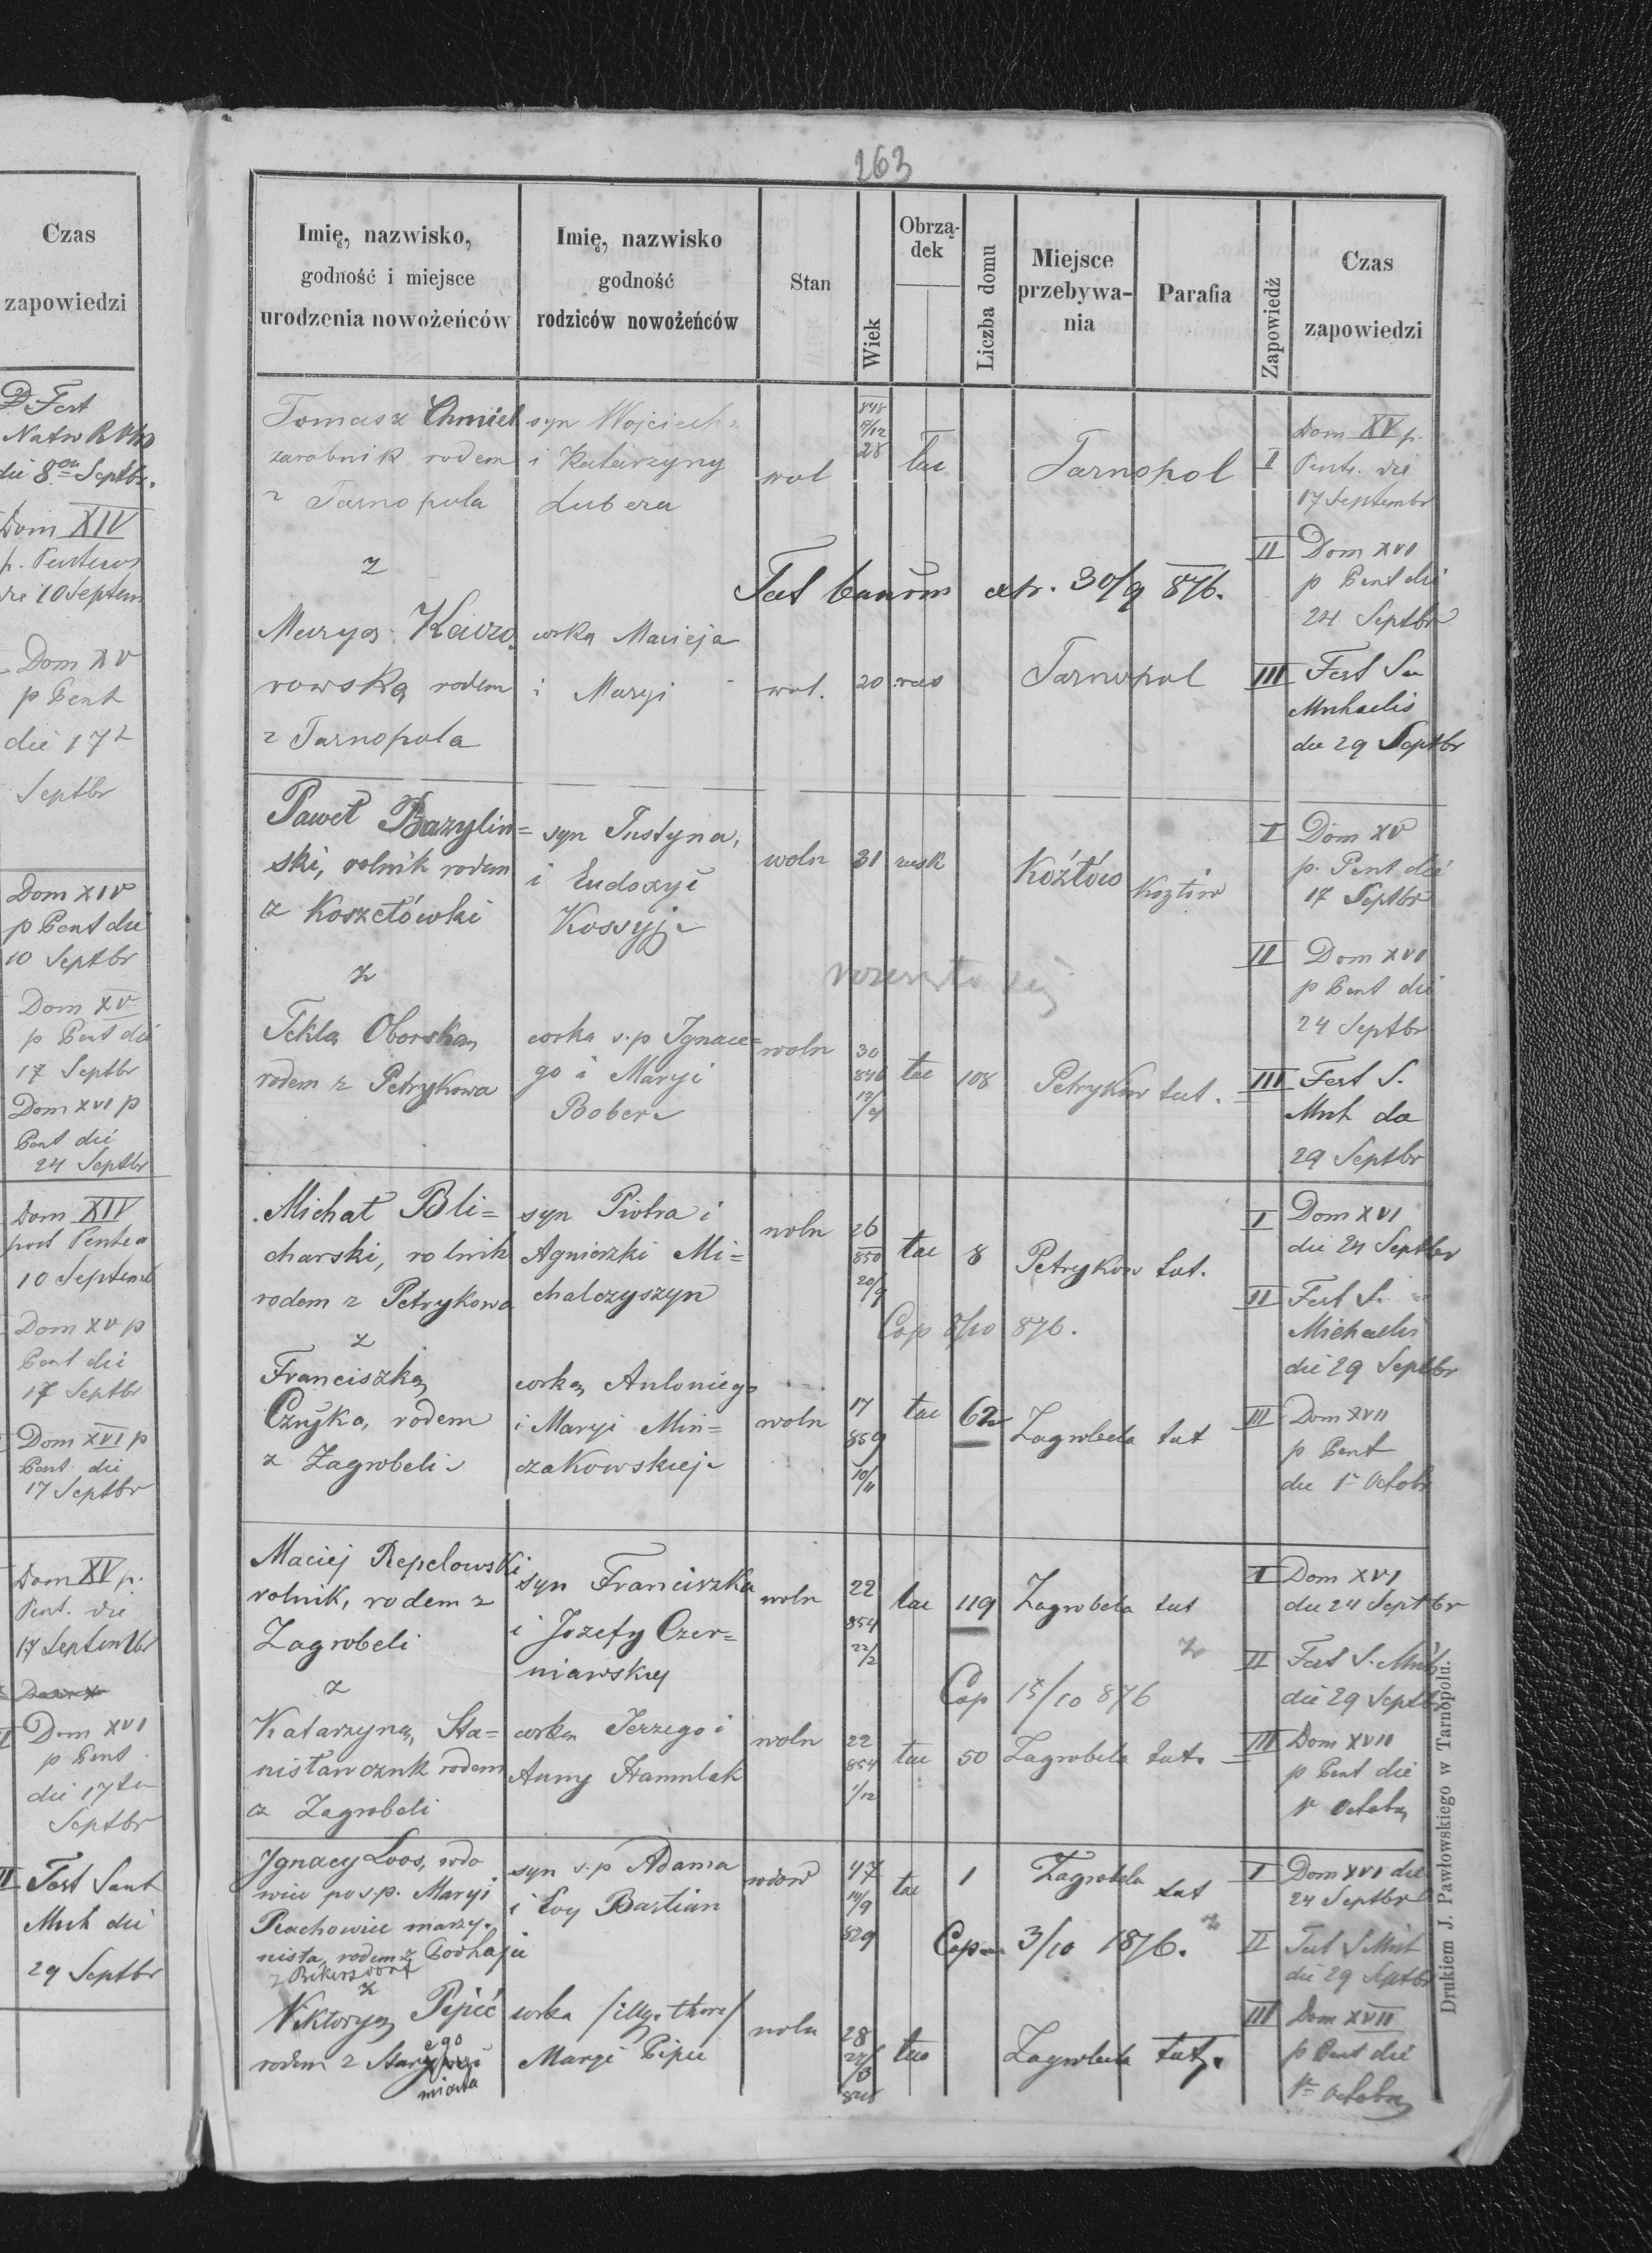 Czas
zapowiedzi
D Fest
Natw
die 8 Septbr.
Dom XIV
p.
die 10 Septem
Dom XV
p Pent
die 17
Septbr
Dom XIV
p Pent die
10 Septbr
Dom XV
p Pent die
17 Septbr
Dom XVI p
Pent die
24 Septbr
Dom XIV
post Pente
10 Septemb
Dom XV p
Pent die
17 Septbr
Dom XVI p
Pent die
17 Septbr
Dom XV p.
Pent. die
17 Septembr
Dom XVI
p Pent
die 17
Septbr
II Fest Sant
Mich die
29 Septbr
263
Imię, nazwisko,
godność i miejsce
urodzenia nowożeńców
Imię, nazwisko
godność
rodziców nowożeńców
Stan
Wiek
Obrzą-
dek
Liczba domu
Miejsce
przebywa-
nia
Parafia
Zapowiedź
Czas
zapowiedzi
Tomasz Chmiel syn Wojciecha 848
zarobnik rodem i Katarzyny wol 28 lac Tarnopol I Dom XV p.
z Tarnopola Lubera Pent. die
17 Septembr
z
II Dom XVI
30/9 876. p Pent die
24 Septbr
Marya Kaczo córka Macieja
rowska rodem i Maryi wol. 20 Tarnopol III Fest
z Tarnopola Michaelis
die 29 Septbr
Paweł Bazylin= syn Justyna,
ski, rolnik rodem i Eudoxyi woln 31 rusk Kozłów Kozłów I Dom XV
z Koszełówki p. Pent die
17 Septbr
z
II Dom XVI
p Pent die
24 Septbr
Tekla Oborska, córka s.p Ignace=
rodem z Petrykowa go i Maryi woln 30 846 lac 108 Petrykow tut. III Fest S.
Bober Mich
29 Septbr
Michał Bli= syn Piotra i
charski, rolnik Agnieszki Mi= woln 26 850 20/9 lac 8 Petrykow tut. I Dom XVI
rodem z Petrykowa chalczyszyn die 24 Septbr
z
Cop 8/10 876. II Fest S.
Michaelis
die 29 Septbr
Franciszka, córka, Antoniego
Czuyka, rodem i Maryi Min= woln 17 859 10/11 lac 62 Zagrobela tut III Dom XVII
z Zagrobeli czakowskiej p Pent
die 1 Octobr
Maciej Repelowski syn Franciszka
rolnik, rodem z i Jozefy Czer= woln 22 854 22/2 lac 119 Zagrobela tut I Dom XVI
Zagrobeli niawskiej die 24 Septbr
z
Cop 15/10 876 II Fest S. Mich
die 29 Septbr
Katarzyna, Sta= córka Jerzego i
nisławczuk rodem Anny woln 22 854 1/12 lac 50 Zagrobela tut. III Dom XVII
z Zagrobeli p Pent die
1 Octobr
Ignacy Loos, wdo syn s.p Adama
wiec po s.p. Maryi i Evy Bastian wdow 47 14/9 829 lac 1 Zagrobela tut I Dom XVI die
24 Septbr
nista, rodem z
z
Cop 3/10 1876. II Fest S Mich
die 29 Septbr
Wiktorya, Pepić córka
rodem z Star ego Maryi woln 28 lac Zagrobela tut. III Dom XVII
miasta p Pent die
1 Octobr
Drukiem J. Pawłowskiego w Tarnopolu.